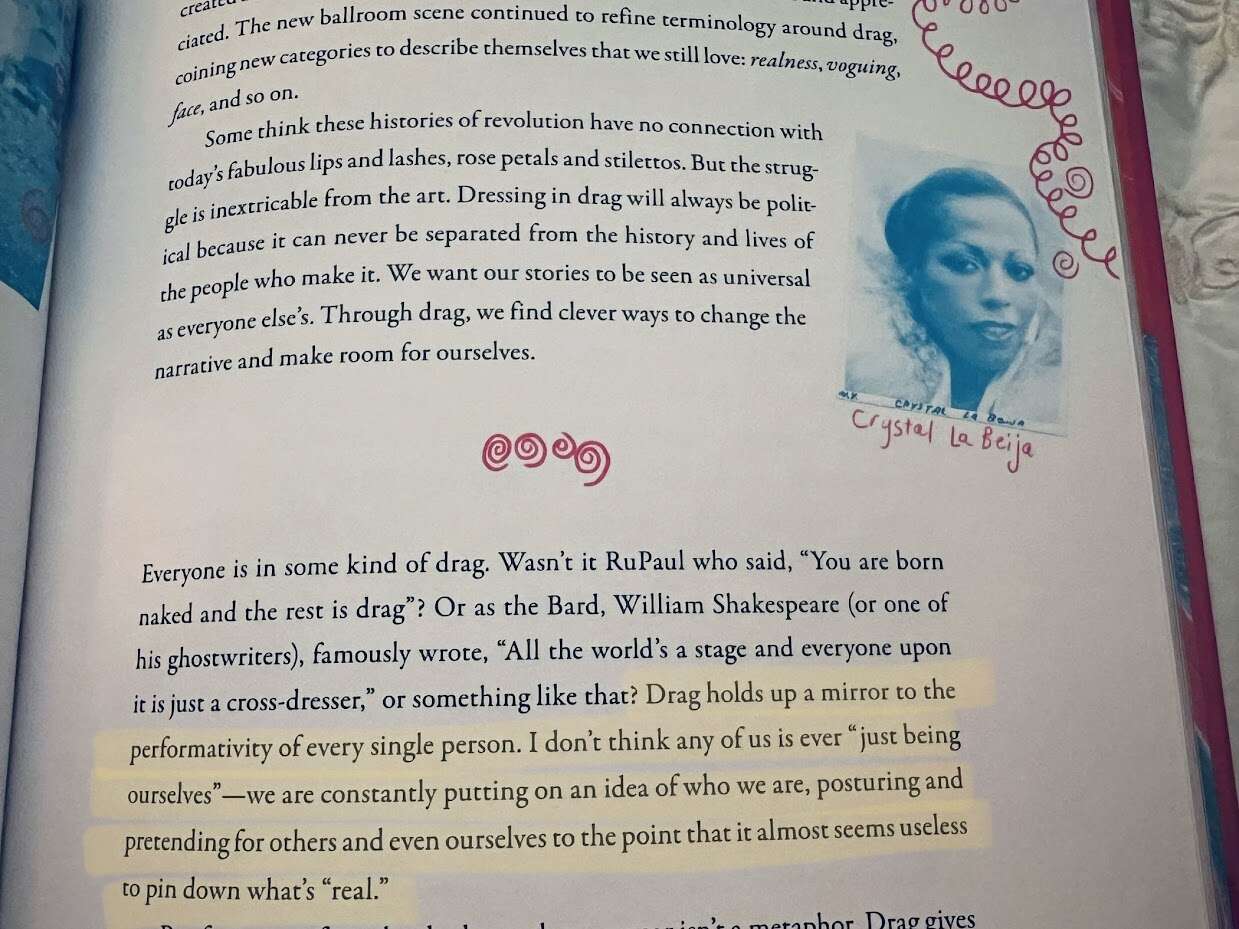 ciated. The new ballroom scene continued to refine terminology around drag,
coining new categories to describe themselves that we still love: realness, voguing,
face, and so on.
Some think these histories of revolution have no connection with
today's fabulous lips and lashes, rose petals and stilettos. But the strug-
gle is inextricable from the art. Dressing in drag will always be polit-
ical because it can never be separated from the history and lives of
the people who make it. We want our stories to be seen as universal
as everyone else's. Through drag, we find clever ways to change the
narrative and make room for ourselves.
CRYSTAL LA
Crystal La Beija
Everyone is in some kind of drag. Wasn't it RuPaul who said, “You are born
naked and the rest is drag”? Or as the Bard, William Shakespeare (or one of
his ghostwriters), famously wrote, “All the world's a stage and everyone upon
it is just a cross-dresser,” or something like that? Drag holds up a mirror to the
performativity of every single person. I don't think any of us is ever “just being
ourselves”—we are constantly putting on an idea of who we are, posturing and
pretending for others and even ourselves to the point that it almost seems useless
to pin down what's “real.”
metaphor. Drag gives